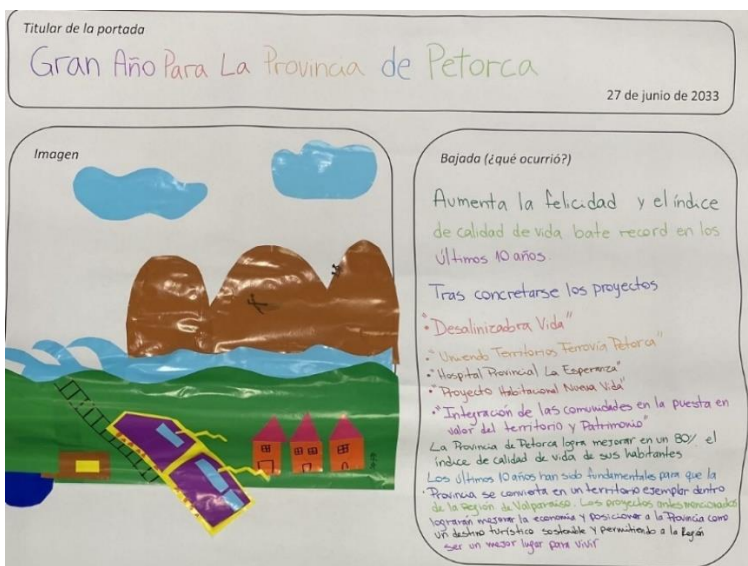 Titular de la portada
Gran Año Para La Provincia de Petorca
27 de junio de 2033
Imagen
Bajada (¿qué ocurrió?)
Aumenta la felicidad y el índice
de calidad de vida bate record en los
Últimos 10 años.
Tras concretarse los proyectos
• "Desalinizadora Vida"
• "Uniendo Territorios Ferrovía Petorca"
• "Hospital Provincial La Esperanza"
• "Proyecto Habitacional Nueva Vida"
• "Integración de las comunidades en la puesta en
valor del territorio y Patrimonio"
La Provincia de Petorca logra mejorar en un 80% el
índice de calidad de vida de sus habitantes
Los últimos 10 años han sido fundamentales para que la
Provincia se convierta en un territorio ejemplar dentro
de la Región de Valparaíso. Los proyectos antes mencionados
lograran mejorar la economía y posicionar a la Provincia como
un destino turístico sostenible y permitiendo a la Región
ser un mejor lugar para vivir